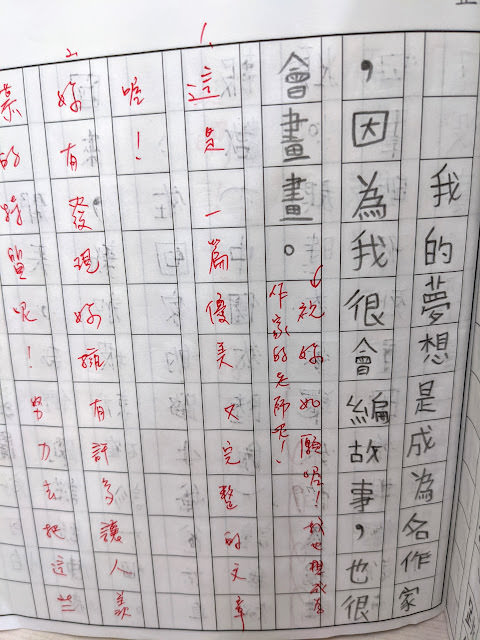 我的夢想是成為名作家
，因為我很會編故事，也很
會畫畫。
祝妳如願喔！我也想成為
作家的老師呢！
1. 這是一篇優美又完整的文章
喔！
2. 妳有發現妳擁有許多讓人羨
慕的特質呢！努力去把這些